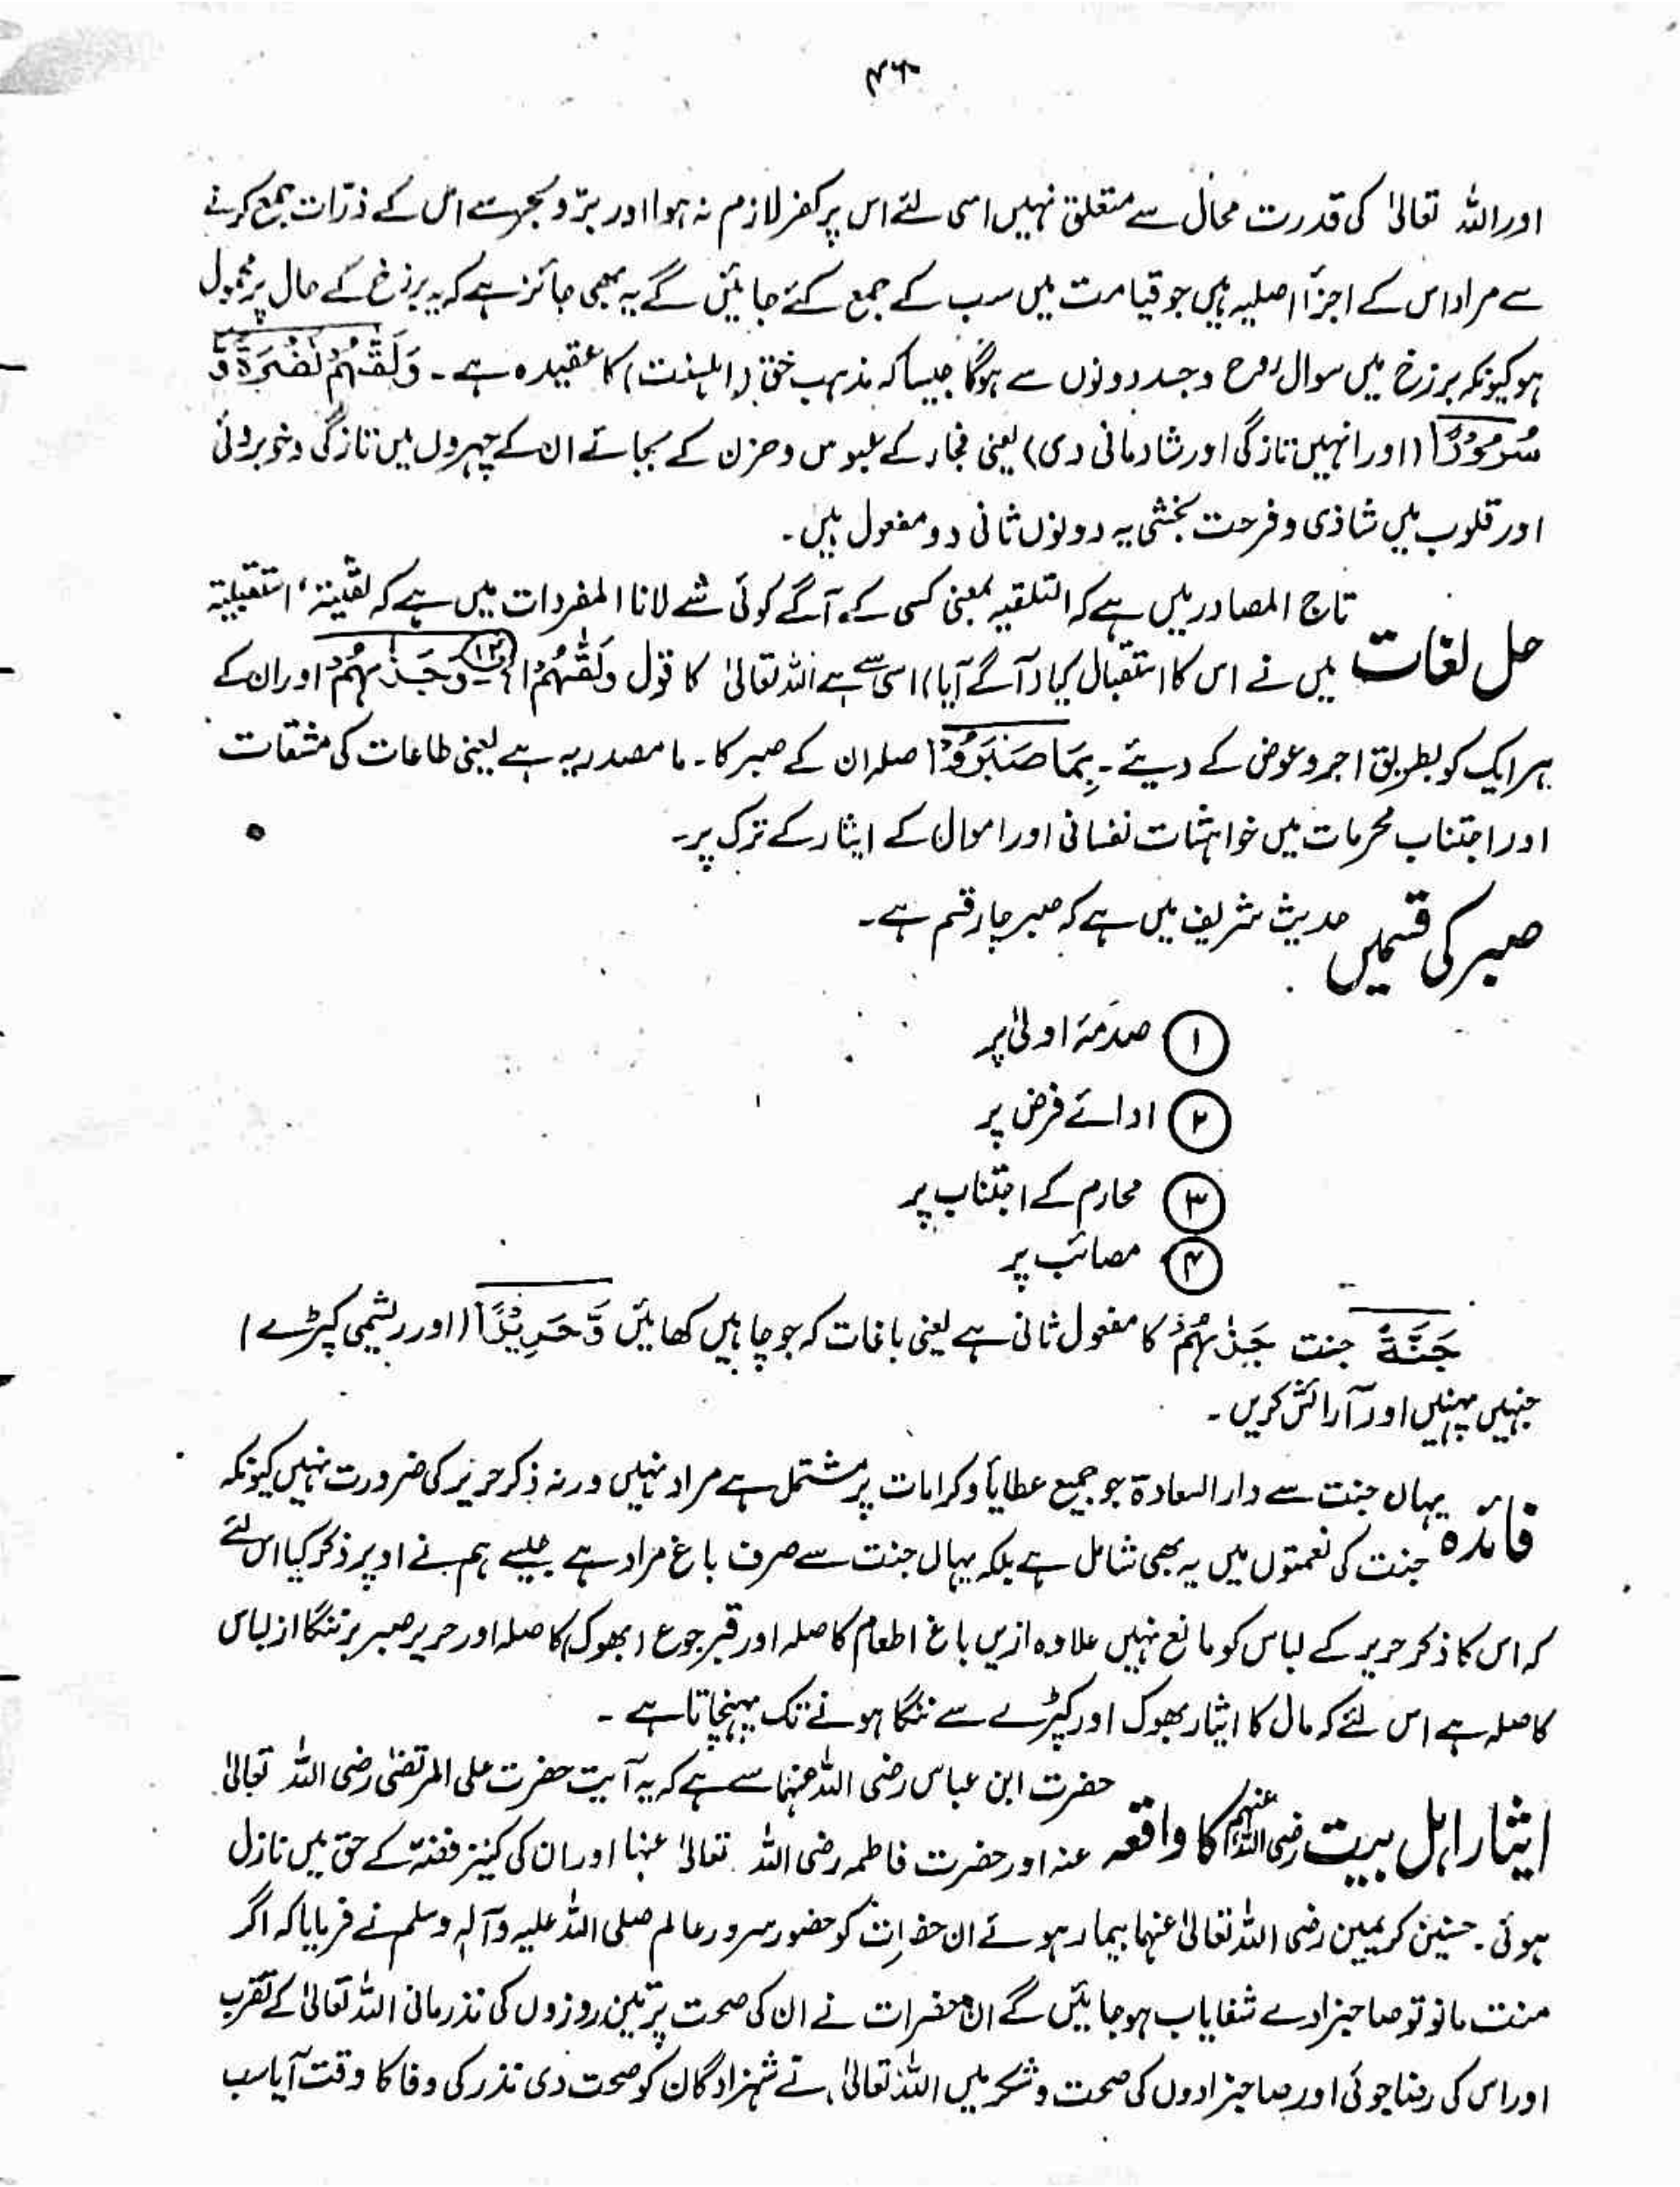 ۴۶۰
اور اللہ تعالیٰ کی قدرت محال سے متعلق نہیں اسی لئے اس پر کفر لازم نہ ہوا اور برّ و بحر سے اس کے ذرّات جمع کرنے
سے مراد اس کے اجزأ اصلیہ ہیں جو قیامت میں سب کے جمع کئے جائیں گے یہ بھی جائز ہے کہ یہ برزخ کے حال پر محمول
ہو کیونکہ برزخ میں سوال روح و جسد دونوں سے ہوگا جیسا کہ مذہب حق (اہلسنت) کا عقیدہ ہے ۔ وَلَقّٰهُمْ نَضْرَةً وَّ
سُرُوْرًا (اور انہیں تازگی اور شادمانی دی) یعنی فجار کے عبوس و حزن کے بجائے ان کے چہروں میں تازگی و خوبروئی
اور قلوب میں شادی و فرحت بخشی یہ دونوں ثانی دو مفعول ہیں ۔
حل لغات تاج المصادر میں ہے کہ التلقیہ بمعنی کسی کے آگے کوئی شے لانا المفردات میں ہے کہ لقّیتہ، استقبلتہ
میں نے اس کا استقبال کیا (آگے آیا) اسی سے ہے اللہ تعالیٰ کا قول ولقّٰهُمْ الخ ۱۲ وَجَزٰىهُمْ اور ان کے
ہر ایک کو بطریق اجر و عوض کے دیئے ۔ بِمَا صَبَرُوْا صلہ ان کے صبر کا ۔ ما مصدریہ ہے یعنی طاعات کی مشقات
اور اجتناب محرمات میں خواہشات نفسانی اور اموال کے ایثار کے ترک پر ۔
صبر کی قسمیں حدیث شریف میں ہے کہ صبر چار قسم ہے ۔
۱ صدمۂ اولیٰ پر
۲ ادائے فرض پر
۳ محارم کے اجتناب پر
۴ مصائب پر
جَنَّةً جنت جَزٰىهُمْ کا مفعول ثانی ہے یعنی باغات کہ جو چاہیں کھائیں وَّحَرِیْرًا (اور ریشمی کپڑے)
جنہیں پہنیں اور آرائش کریں ۔
فائدہ یہاں جنت سے دار السعادۃ جو جمیع عطایا و کرامات پر مشتمل ہے مراد نہیں ورنہ ذکر حریر کی ضرورت نہیں کیونکہ
جنت کی نعمتوں میں یہ بھی شامل ہے بلکہ یہاں جنت سے صرف باغ مراد ہے جیسے ہم نے اوپر ذکر کیا اس لئے
کہ اس کا ذکر حریر کے لباس کو مانع نہیں علاوہ ازیں باغ اطعام کا صلہ اور جوع (بھوک) کا صلہ اور حریر صبر بر ننگا از لباس
کا صلہ ہے اس لئے کہ مال کا ایثار بھوک اور کپڑے سے ننگا ہونے تک پہنچاتا ہے ۔
ایثار اہل بیت رضی اللہ عنہم کا واقعہ حضرت ابن عباس رضی اللہ عنہما سے ہے کہ یہ آیت حضرت علی المرتضیٰ رضی اللہ تعالیٰ
عنہ اور حضرت فاطمہ رضی اللہ تعالیٰ عنہا اور ان کی کنیز فضۃ کے حق میں نازل
ہوئی ۔ حسنین کریمین رضی اللہ تعالیٰ عنہما بیمار ہوئے ان حضرات کو حضور سرور عالم صلی اللہ علیہ وآلہ وسلم نے فرمایا کہ اگر
منت مانو تو صاحبزادے شفایاب ہو جائیں گے ان حضرات نے ان کی صحت پر تین روزوں کی نذر مانی اللہ تعالیٰ کے تقرب
اور اس کی رضا جوئی اور صاحبزادوں کی صحت و شکر میں اللہ تعالیٰ نے شہزادگان کو صحت دی نذر کی وفا کا وقت آیا سب